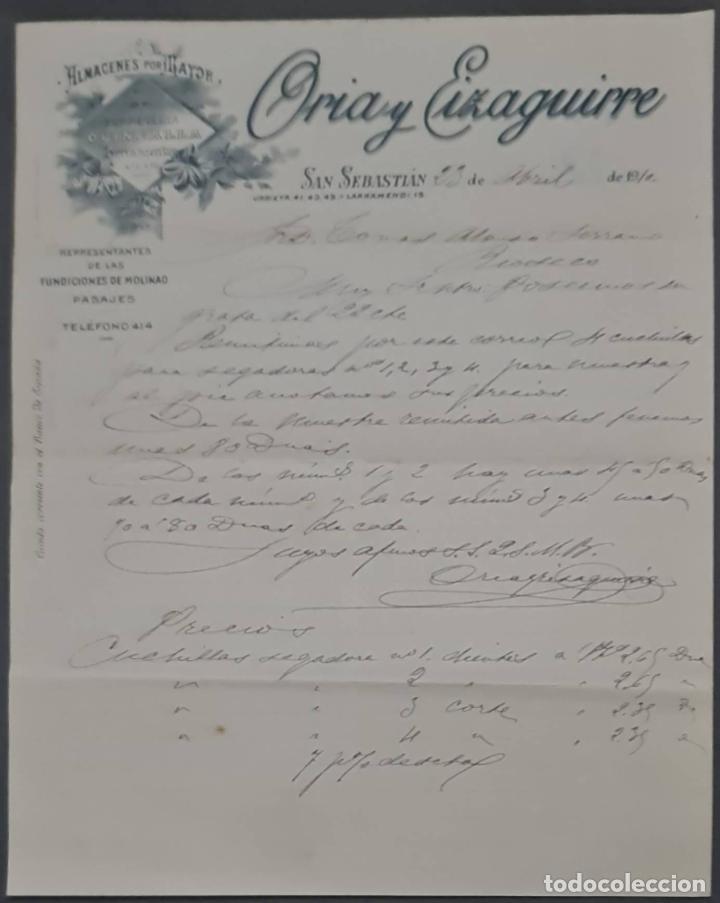 ALMACENES POR MAYOR
Oria y Eizaguirre
SAN SEBASTIÁN 23 de Abril de 1910.
URBIETA 41-43-45 - LARRAMENDI 15
REPRESENTANTES
DE LAS
FUNDICIONES DE MOLINAO
PASAJES
TELÉFONO 414
Cuenta corriente con el Banco de España
Sr. D. Tomas Alonso Serrano
Rioseco
Muy Sr. ntro. Poseemos su
grata del 22 cte
Remitimos por este correo 4 cuchillas
para segadoras nos 1, 2, 3 y 4 para muestra y
al pie anotamos sus precios.
De la muestra remitida antes tenemos
unas 80 Dnas.
De los núms. 1 y 2 hay unas 45 a 50 Dnas
de cada núm. y de los núms 3 y 4 unas
70 a 80 Dnas de cada.
Suyos afmos S.S.Q.S.M.B.
Oria y Eizaguirre
Precios
Cuchillas segadora nº 1. dientes a Pts 2.65 Dna
" " 2 " " 2.65 "
" " 3 corte " 2.35 "
" " 4 " " 2.35 "
7 p% descto
todocoleccion
todocoleccion.net